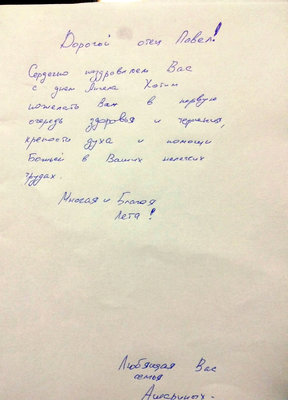 Дорогой отец Павел!
Сердечно поздравляем Вас
с днем Ангела Хотим
пожелать Вам в первую
очередь здоровья и терпения,
крепости духа и помощи
Божьей в Ваших нелегких
трудах.
Многая и Благая
Лета!
Любящая Вас
семья